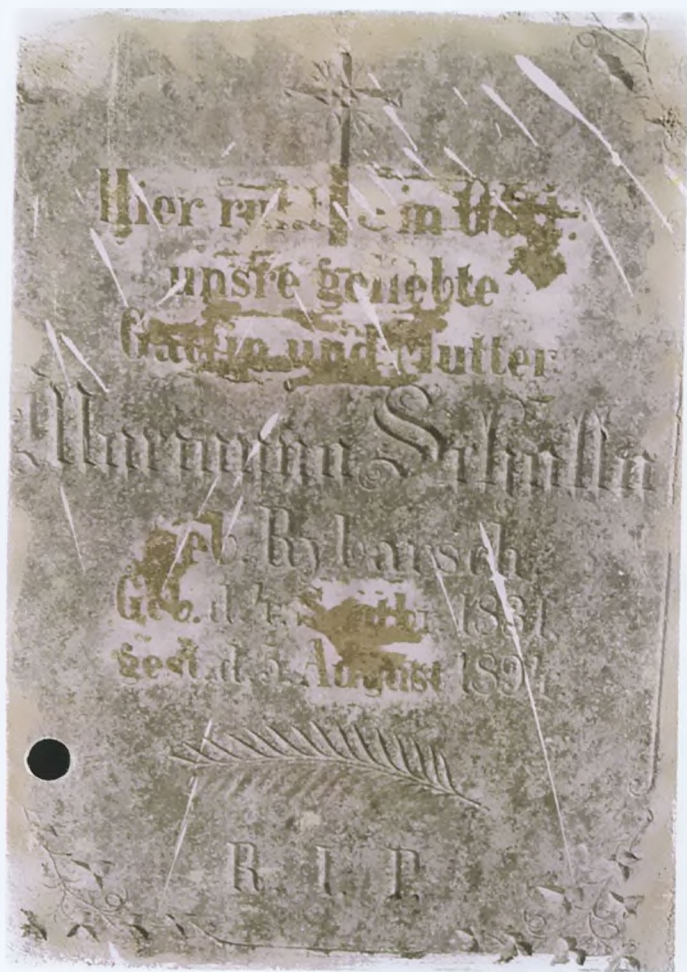 Hier ruht in Gott
unsre geliebte
Gattin und Mutter
Marianna
geb. Rybarsch
Geb. d. Septbr. 1831
Gest. d. 5. August 1897
R. I. P.